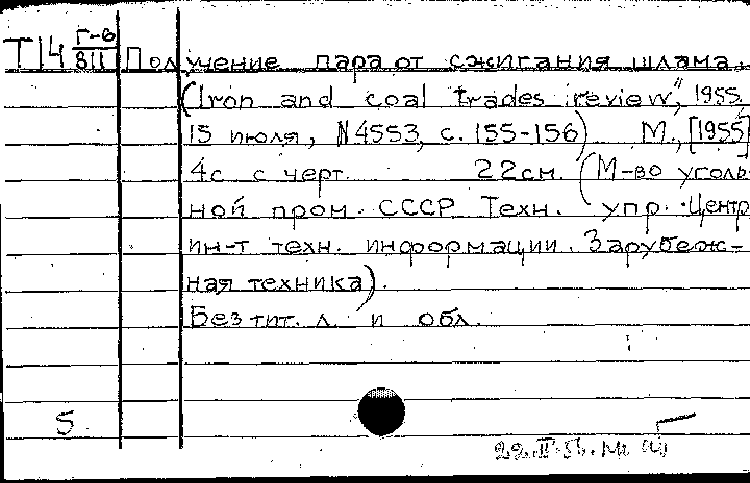 Т14 Г-6/811 Получение пара от сжигания шлама.
("Iron and coal trades review", 1955,
15 июля, N4553, с. 155-156) М., [1955]
4с с черт. 22см. (М-во уголь-
ной пром. СССР Техн. упр. Центр
ин-т техн. информации. Зарубеж-
ная техника).
Без тит. л. и обл.
5